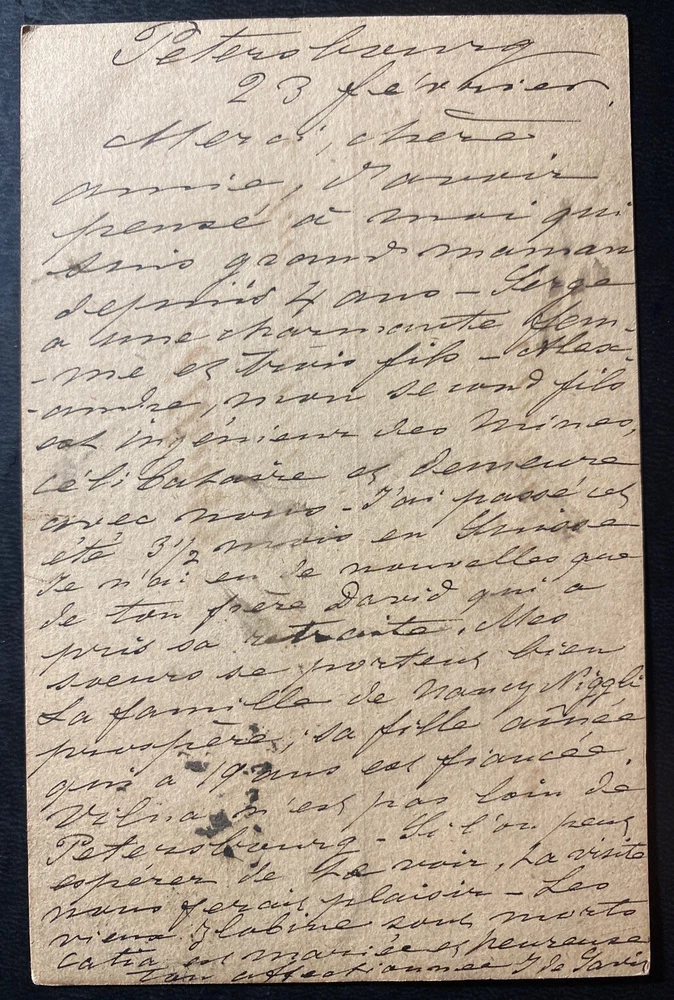 Petersbourg
23 février.
Merci, chère
amie, d'avoir
pensé à moi qui
suis grand maman
depuis 4 ans – Serge
a une charmante fem-
-me et trois fils – Alex-
-andre, mon second fils
est ingénieur des Mines,
célibataire et demeure
avec nous – J'ai passé cet
été 3 1/2 mois en Suisse
Je n'ai eu de nouvelles que
de ton frère David qui a
pris sa retraite. Mes
soeurs se portent bien
La famille de Nancy Niggli
prospère, sa fille aînée
qui a 19 ans est fiancée.
Vilna n'est pas loin de
Petersbourg – Si l'on peut
espérer de te voir, ta visite
nous ferait plaisir – Les
vieux sont morts
Catia est mariée et heureuse
ton affectionnée J de